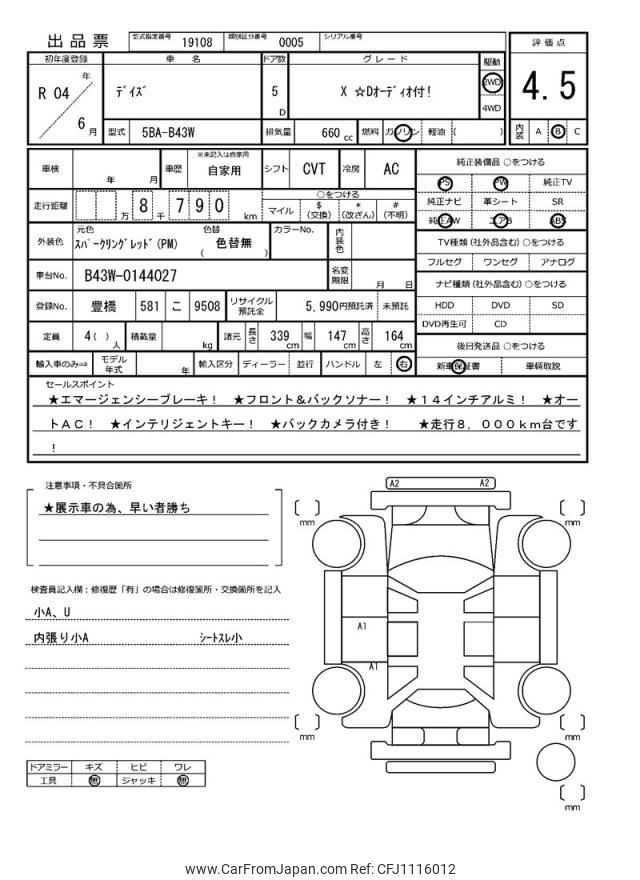 出品票 型式指定番号 19108 類別区分番号 0005 シリアル番号
評価点
4.5
内装 A B C
初年度登録 車名 ドア数 グレード 駆動
R 04 年 6 月 デイズ 5 D X ☆Dオーディオ付! 2WD 4WD
型式 5BA-B43W 排気量 660 cc 燃料 ガソリン 軽油 ( )
車検 年 月 車歴 ※未記入は自家用 自家用 シフト CVT 冷房 AC
走行距離 万 8 千 7 9 0 km ○をつける
マイル $(交換) *(改ざん) #(不明)
外装色 元色 スパークリングレッド(PM) 色替 ( 色替無 ) カラーNo. 内装色
車台No. B43W-0144027 名変期限 月 日
登録No. 豊橋 581 こ 9508 リサイクル預託金 5,990円預託済 未預託
定員 4( ) 人 積載量 kg 諸元 長さ 339 cm 幅 147 cm 高さ 164 cm
輸入車のみ⇒ モデル年式 年 輸入区分 ディーラー 並行 ハンドル 左 右
純正装備品 ○をつける
PS PW 純正TV
純正ナビ 革シート SR
純正AW エアB ABS
TV種類(社外品含む) ○をつける
フルセグ ワンセグ アナログ
ナビ種類(社外品含む) ○をつける
HDD DVD SD
DVD再生可 CD
後日発送品 ○をつける
新車保証書 車輌取説
セールスポイント
★エマージェンシーブレーキ! ★フロント&バックソナー! ★14インチアルミ! ★オー
トAC! ★インテリジェントキー! ★バックカメラ付き! ★走行8,000km台です
!
注意事項・不具合箇所
★展示車の為、早い者勝ち
検査員記入欄:修復歴「有」の場合は修復箇所・交換箇所を記入
小A、U
内張り小A シートスレ小
ドアミラー キズ ヒビ ワレ
工具 無 ジャッキ 無
A2 A2
mm mm
A1
A1
mm mm
mm
www.CarFromJapan.com Ref: CFJ1116012